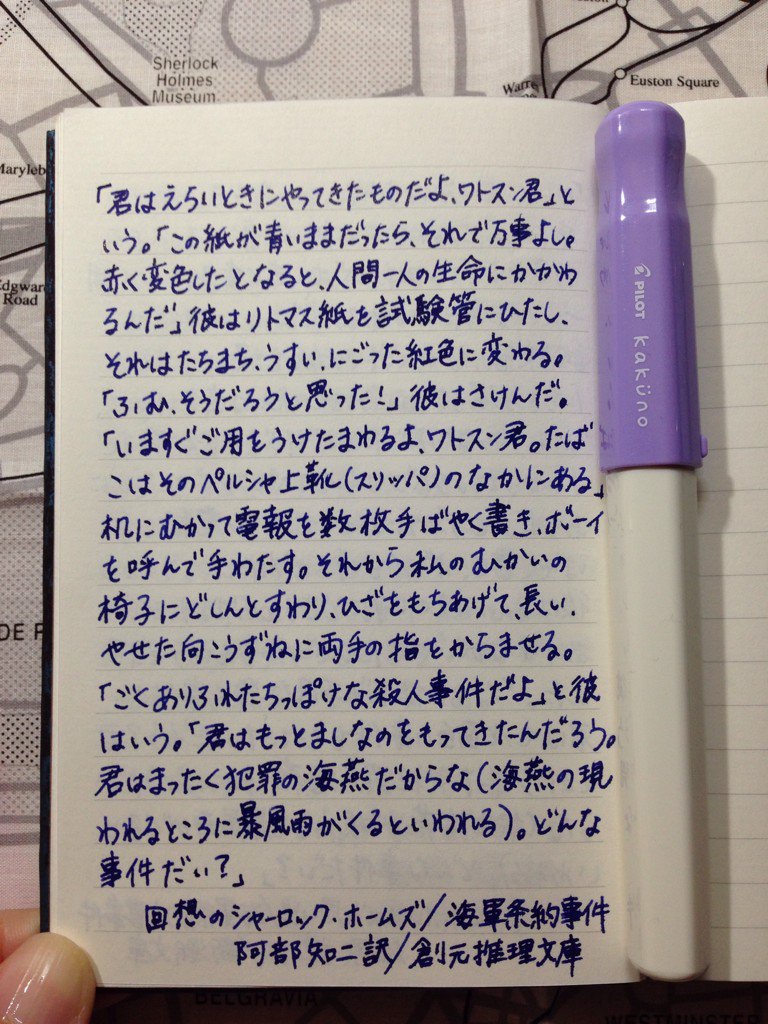 Sherlock
Holmes
Museum
Warre
Euston Square
Maryleb
Edgwar
Road
「君はえらいときにやってきたものだよ、ワトスン君」と
いう。「この紙が青いままだったら、それで万事よし。
赤く変色したとなると、人間一人の生命にかかわ
るんだ」彼はリトマス紙を試験管にひたし、
それはたちまち、うすい、にごった紅色に変わる。
「ふむ、そうだろうと思った!」彼はさけんだ。
「いますぐご用をうけたまわるよ、ワトスン君。たば
こはそのペルシャ上靴(スリッパ)のなかにある」
机にむかって電報を数枚手ばやく書き、ボーイ
を呼んで手わたす。それから私のむかいの
椅子にどしんとすわり、ひざをもちあげて、長い、
やせた向こうずねに両手の指をからませる。
「ごくありふれたちっぽけな殺人事件だよ」と彼
はいう。「君はもっとましなのをもってきたんだろう。
君はまったく犯罪の海燕だからな(海燕の現
われるところに暴風雨がくるといわれる)。どんな
事件だい?」
回想のシャーロック・ホームズ/海軍条約事件
阿部知二訳/創元推理文庫
PILOT kaküno
DE P
BELGRAVIA
WESTMINSTER